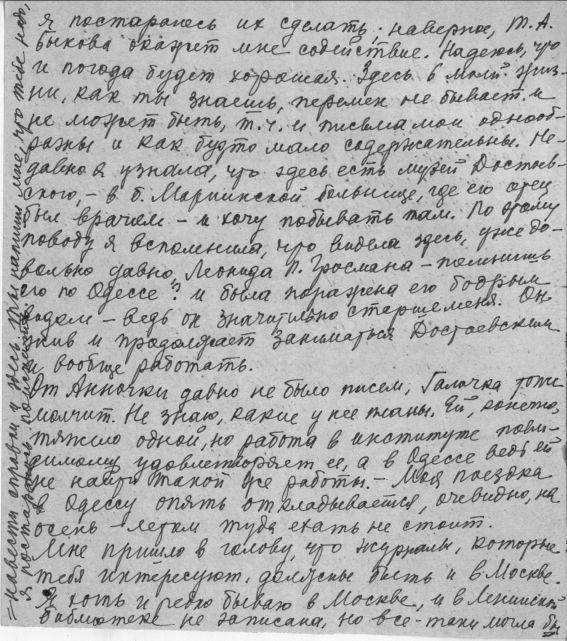 я постараюсь их сделать; наверное, Т. А.
Быкова окажет мне содействие. Надеюсь, что
и погода будет хорошая. Здесь в моей жиз-
ни, как ты знаешь, перемен не бывает и
не может быть, т.ч. и письма мои однооб-
разны и как будто мало содержательны. Не-
давно я узнала, что здесь есть музей Достоев-
ского, - в б. Мариинской больнице, где его отец
был врачем - и хочу побывать там. По этому
поводу я вспомнила, что видела здесь, уже до-
вольно давно, Леонида П. Гросмана - помнишь
его по Одессе? и была поражена его бодрым
видом - ведь он значительно старше меня. Он
жив и продолжает заниматься Достоевским
и вообще работать.
От Анночки давно не было писем, Галочка тоже
молчит. Не знаю, какие у нее планы. Ей, конечно,
тяжело одной, но работа в институте пови-
димому удовлетворяет ее, а в Одессе ведь ей
не найти такой же работы. - Моя поездка
в Одессу опять откладывается, очевидно, на
осень - летом туда ехать не стоит.
Мне пришло в голову, что журналы, которые
тебя интересуют, должны быть и в Москве.
Я хоть и редко бываю в Москве, и в Ленинской
библиотеке не записана, но все-таки могла бы
навести справки и здесь. Ты напиши мне, что тебе надо,
я постараюсь